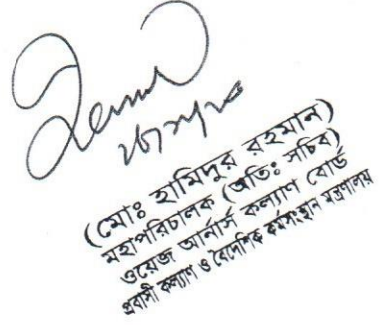 (মোঃ হামিদুর রহমান)
মহাপরিচালক (অতিঃ সচিব)
ওয়েজ আর্নার্স কল্যাণ বোর্ড
প্রবাসী কল্যাণ ও বৈদেশিক কর্মসংস্থান মন্ত্রণালয়